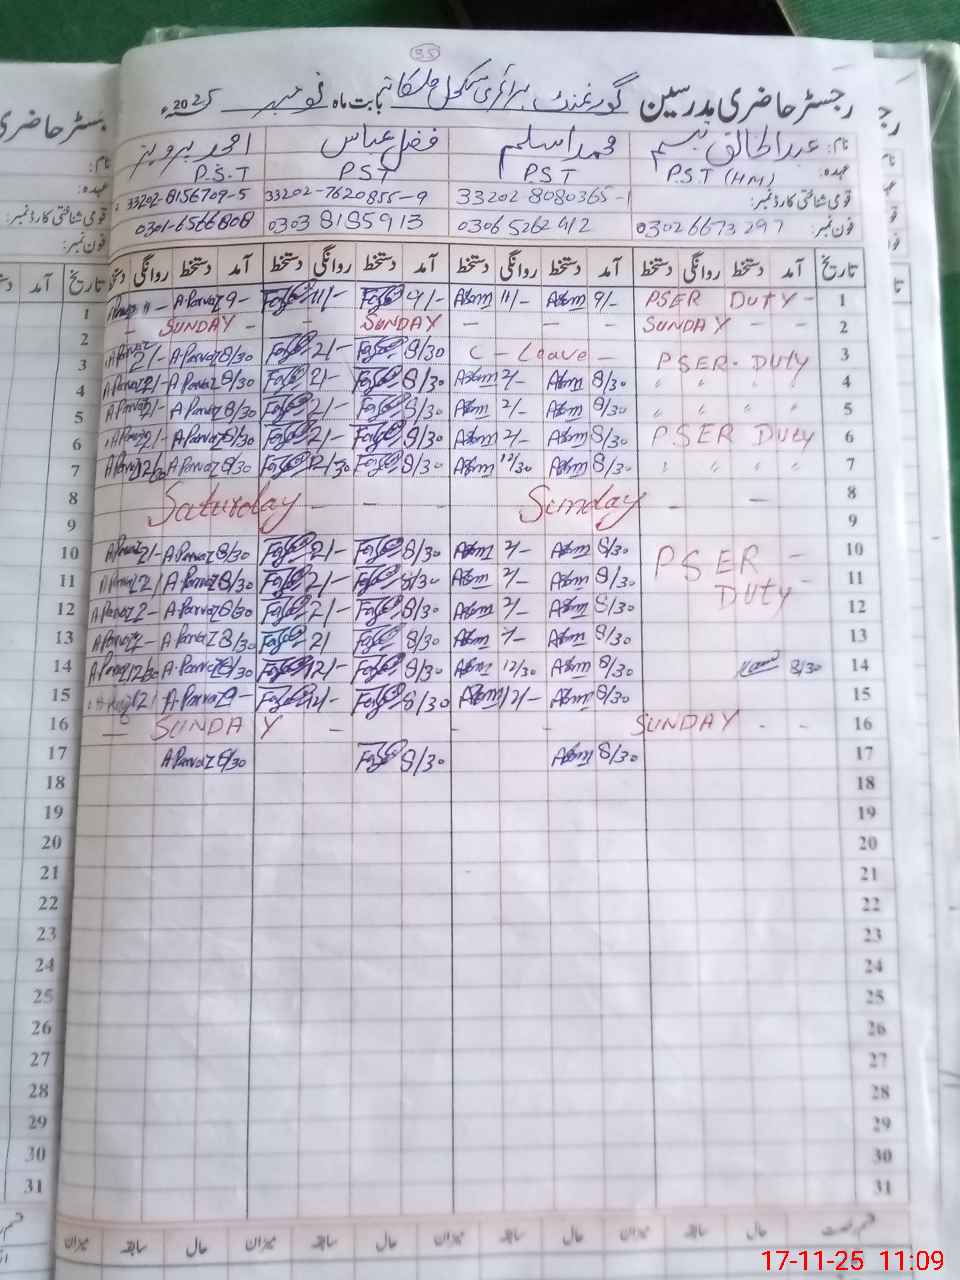 95
رجسٹر حاضری مدرسین گورنمنٹ پرائمری سکول ملکانہ بابت ماہ نومبر 2025ء
نام: عبدالخالق تبسم محمد اسلم فضل عباس امجد پرویز
عہدہ: P.S.T (HM) P.S.T P.S.T P.S.T
قومی شناختی کارڈ نمبر: 33202-8080365-1 33202-7620855-9 33202-8156709-5
فون نمبر: 03026673297 03065262412 03038195913 0301-6566808
تاریخ آمد دستخط روانگی دستخط آمد دستخط روانگی دستخط آمد دستخط روانگی دستخط آمد دستخط روانگی دستخط
1 PSER DUTY - 9/- Aslm 11/- Aslm 9/- Fazl 11/- Fazl 9- A.Parvaz 11-
2 SUNDAY - - - - - - SUNDAY - - SUNDAY -
3 PSER. DUTY C - Leave - 8/30 Fazl 2/- Fazl 8/30 A.Parvaz 2/-
4 " " " " 8/30 Aslm 2/- Aslm 8/30 Fazl 2/- Fazl 8/30 A.Parvaz 2/- A.Parvaz
5 " " " " 8/30 Aslm 2/- Aslm 8/30 Fazl 2/- Fazl 8/30 A.Parvaz 2/-
6 PSER Duty 8/30 Aslm 2/- Aslm 8/30 Fazl 2/- Fazl 8/30 A.Parvaz 2/-
7 " " " " 8/30 Aslm 12/30 Aslm 8/30 Fazl 12/30 Fazl 8/30 A.Parvaz 12/30
8
9 Saturday - - Sunday - -
10 PSER - 8/30 Aslm 2/- Aslm 8/30 Fazl 2/- Fazl 8/30 A.Parvaz 2/-
11 DUTY - 8/30 Aslm 2/- Aslm 8/30 Fazl 2/- Fazl 8/30 A.Parvaz 2/
12 8/30 Aslm 2/- Aslm 8/30 Fazl 2/- Fazl 8/30 A.Parvaz 2- A.Parvaz
13 8/30 Aslm 2/- Aslm 8/30 Fazl 2/ Fazl 8/30 A.Parvaz 2-
14 8/30 8/30 Aslm 12/30 Aslm 8/30 Fazl 12/- Fazl 8/30 A.Parvaz 12/30
15 8/30 Aslm 12/- Aslm 8/30 Fazl 12/- Fazl 9- A.Parvaz 12/
16 SUNDAY - - - - - - SUNDAY -
17 8/30 Aslm 8/30 Fazl 8/30 A.Parvaz
18
19
20
21
22
23
24
25
26
27
28
29
30
31
قسم رخصت حال سابقہ میزان حال سابقہ میزان حال سابقہ میزان حال سابقہ میزان
17-11-25 11:09